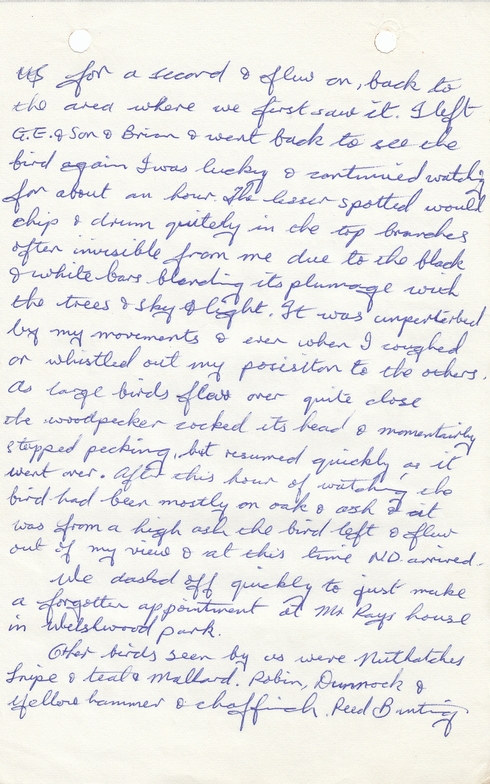 us for a second & flew on, back to
the area where we first saw it. I left
G.E. & Son & Brian & went back to see the
bird again I was lucky & continued watching
for about an hour. The lesser spotted would
chip & drum quitely in the top branches
often invisible from me due to the black
& white bars blending its plumage with
the trees & sky & light. It was unperterbed
by my movements & even when I coughed
or whistled out my posisiton to the others.
As large birds flow over quite close
the woodpecker cocked its head & momentairly
stopped pecking, but resumed quickly as it
went over. After this hour of watching the
bird had been mostly on oak & ash & it
was from a high ash the bird left & flew
out of my view & at this time N.D. arrived.
We dashed off quickly to just make
a forgotten appointment at Mr Rays house
in Welshwood park.
Other birds seen by us were Nuthatches
Snipe & teal & Mallard. Robin, Dunnock &
Yellowhammer & chaffinch. Reed Bunting